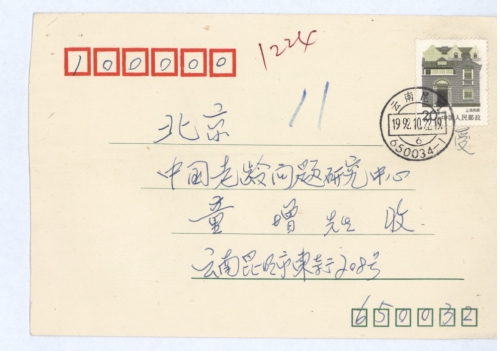 100000
1224
11
上海民居
20
中国人民邮政
云南昆
1992.10.22.19
6
650034-1
北京
中国老龄问题研究中心
童增 先生 收
云南昆明市东寺208号
650032